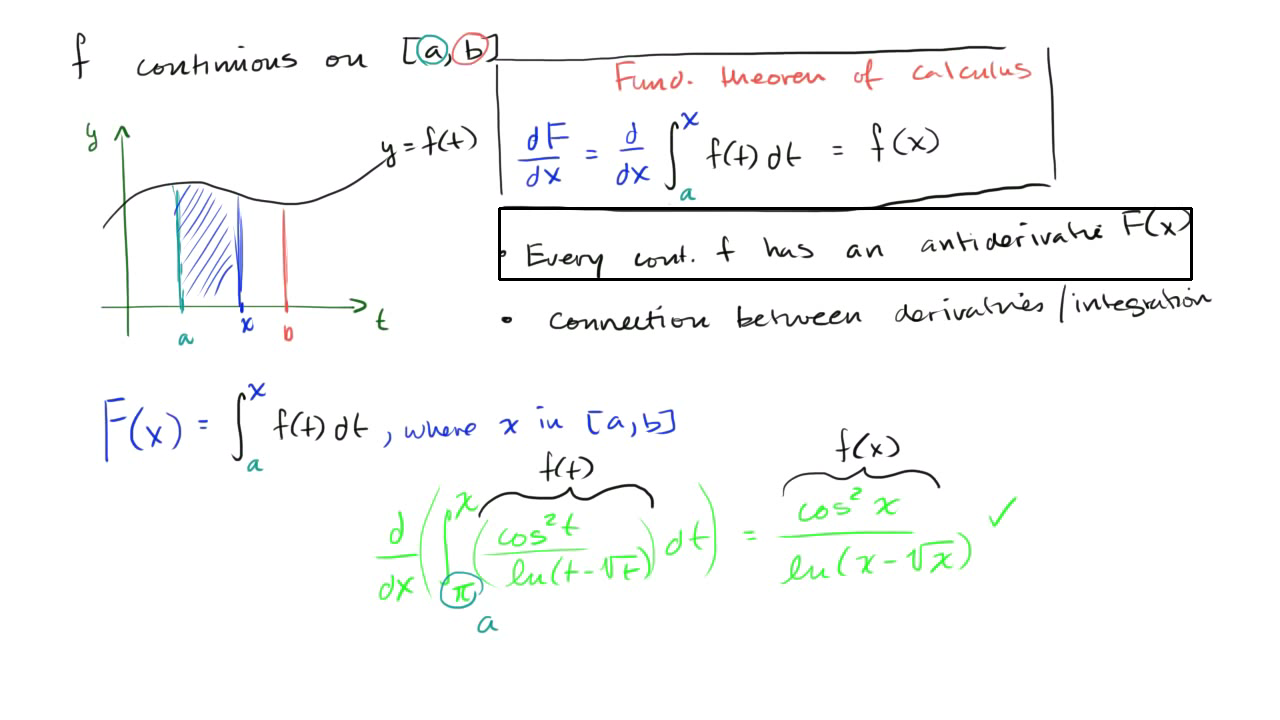 f continuous on [a, b]
Fund. theorem of calculus
dF/dx = d/dx ∫_a^x f(t) dt = f(x)
y
y = f(t)
a
x
b
t
• Every cont. f has an antiderivative F(x)
• connection between derivatives / integration
F(x) = ∫_a^x f(t) dt , where x in [a, b]
f(t)
f(x)
d/dx ( ∫_π^x ( cos²t / ln(t-√t) ) dt ) = cos² x / ln(x-√x) ✓
a